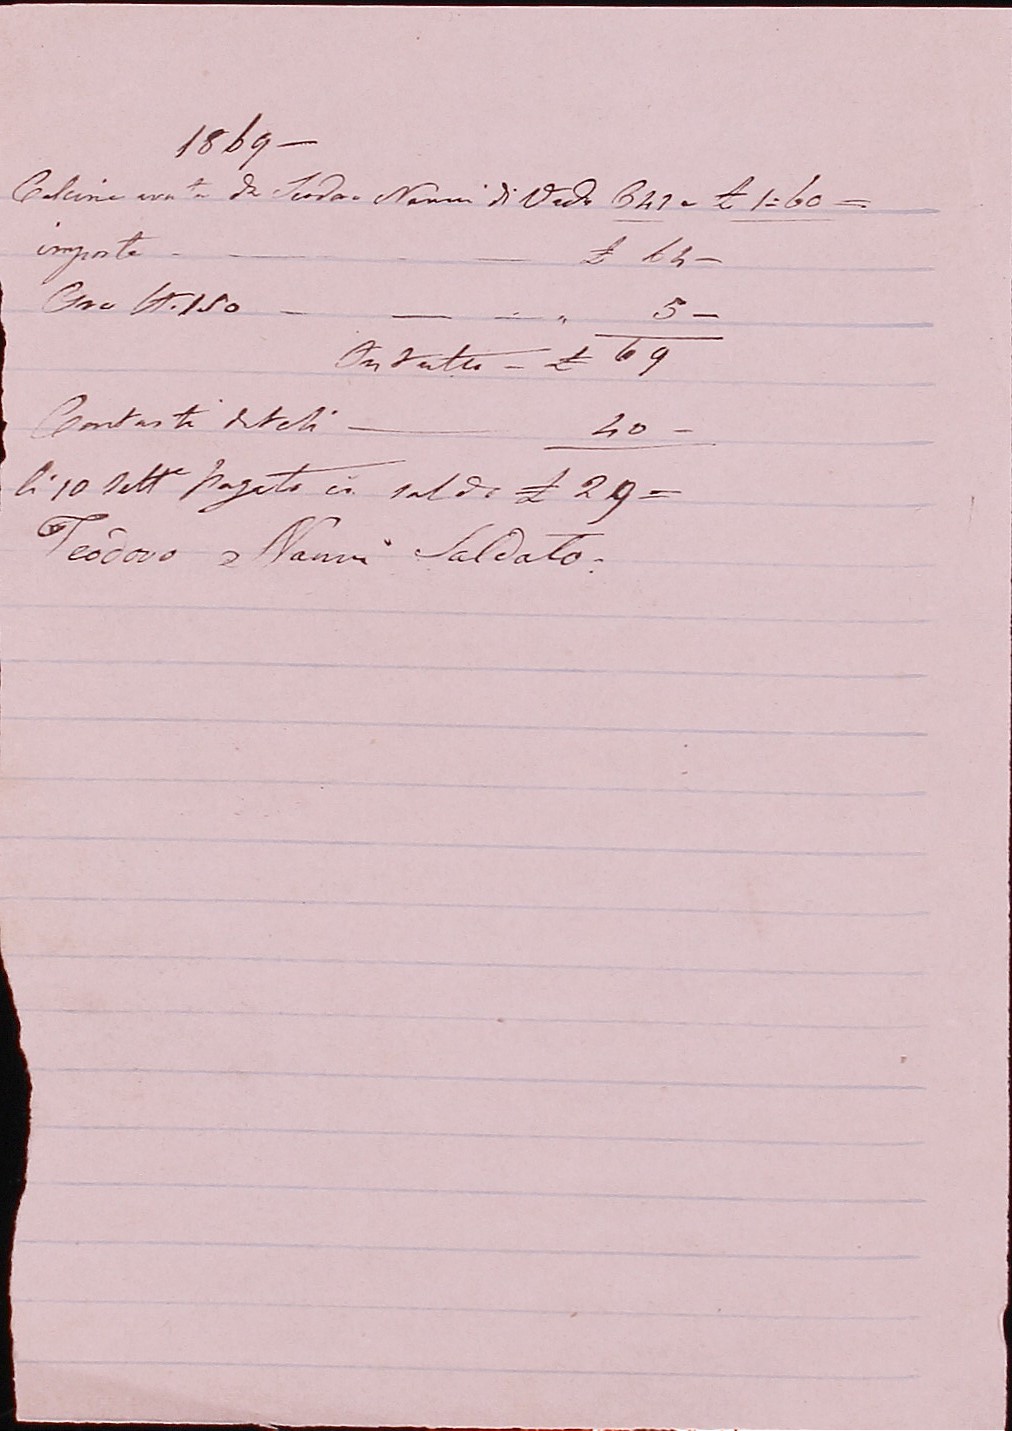 1869 —
Calcina avuta da Teodoro Nanni di Vado a £ 1=60 =
importa - — - — £ 64 —
150 — — - „ 5 —
In tutto — £ 69
Contanti datoli — 40 —
li 10 Sett.e pagato in saldo £ 29 =
Teodoro Nanni Saldato.